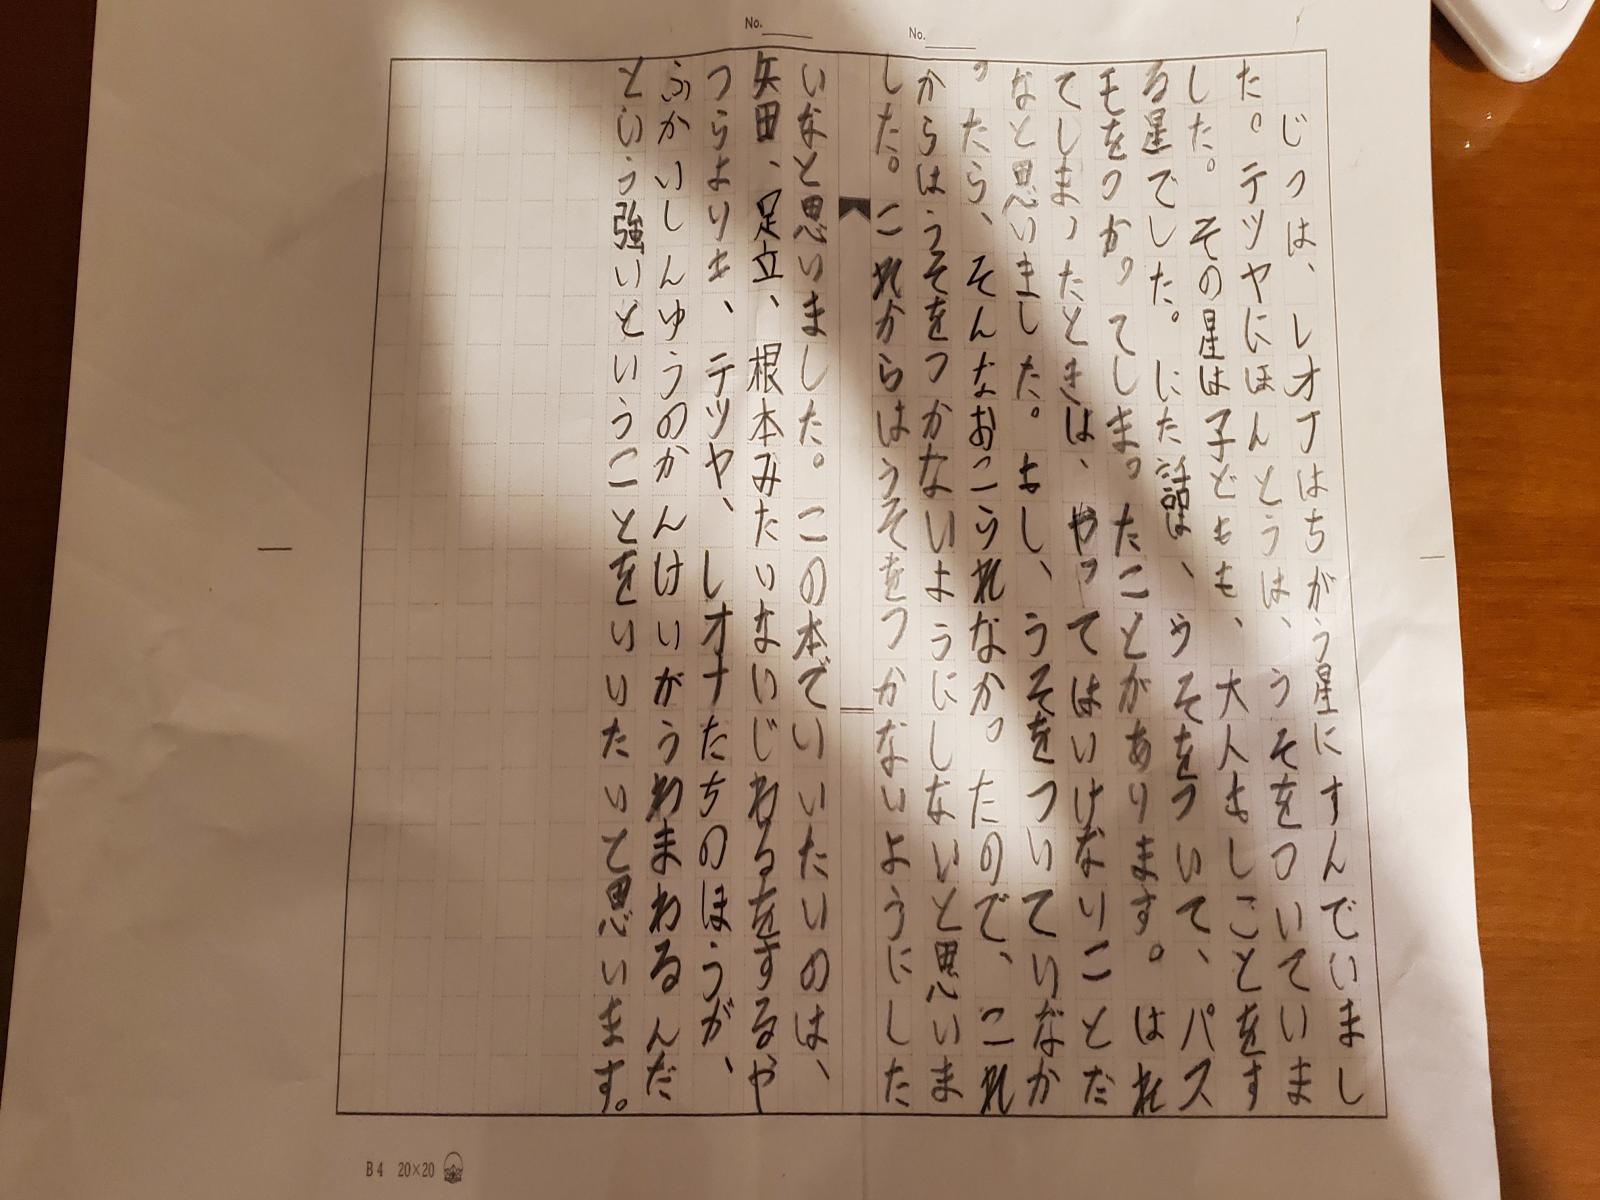 No.
No.
じつは、レオナはちがう星にすんでいまし
た。テツヤにほんとうは、うそをついていま
した。その星は子どもも、大人もしごとをす
る星でした。にた話は、うそをついて、パス
モをつかってしまったことがあります。はれ
てしまったときは、やってはいけないことだ
なと思いました。もし、うそをついていなか
ったら、そんなおこられなかったので、これ
からはうそをつかないようにしないと思いま
した。これからはうそをつかないようにした
いなと思いました。この本でいいたいのは、
矢田、足立、根本みたいないじわるをするや
つらよりも、テツヤ、レオナたちのほうが、
ふかいしんゆうのかんけいがうわまわるんだ
という強いということをいいたいと思います。
B4 20×20